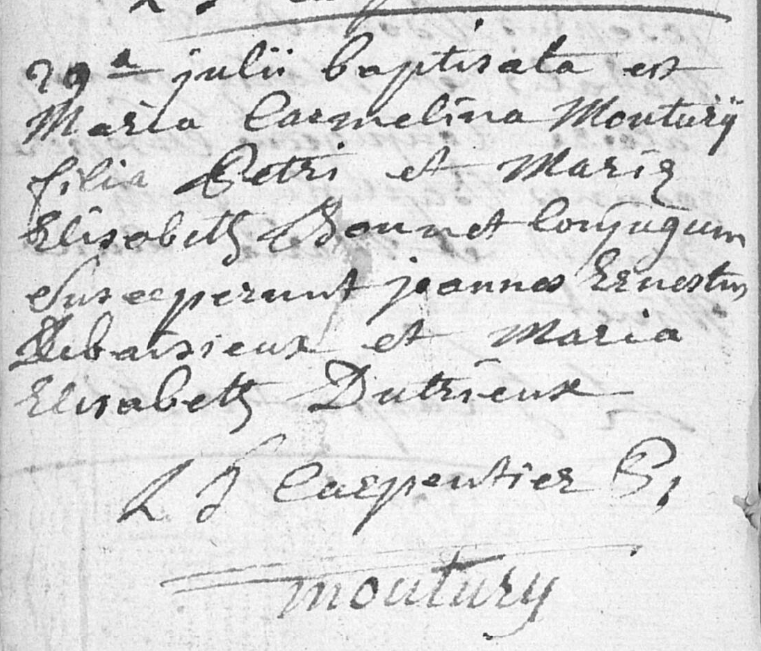 29a julii baptisata est
Maria Carmelina Moutury
filia Petri et Mariæ
Elisabeth Bonnet Conjugum
Susceperunt joannes Ernestus
Debaisieux et Maria
Elisabeth Dutrieux
L J Carpentier P,
moutury